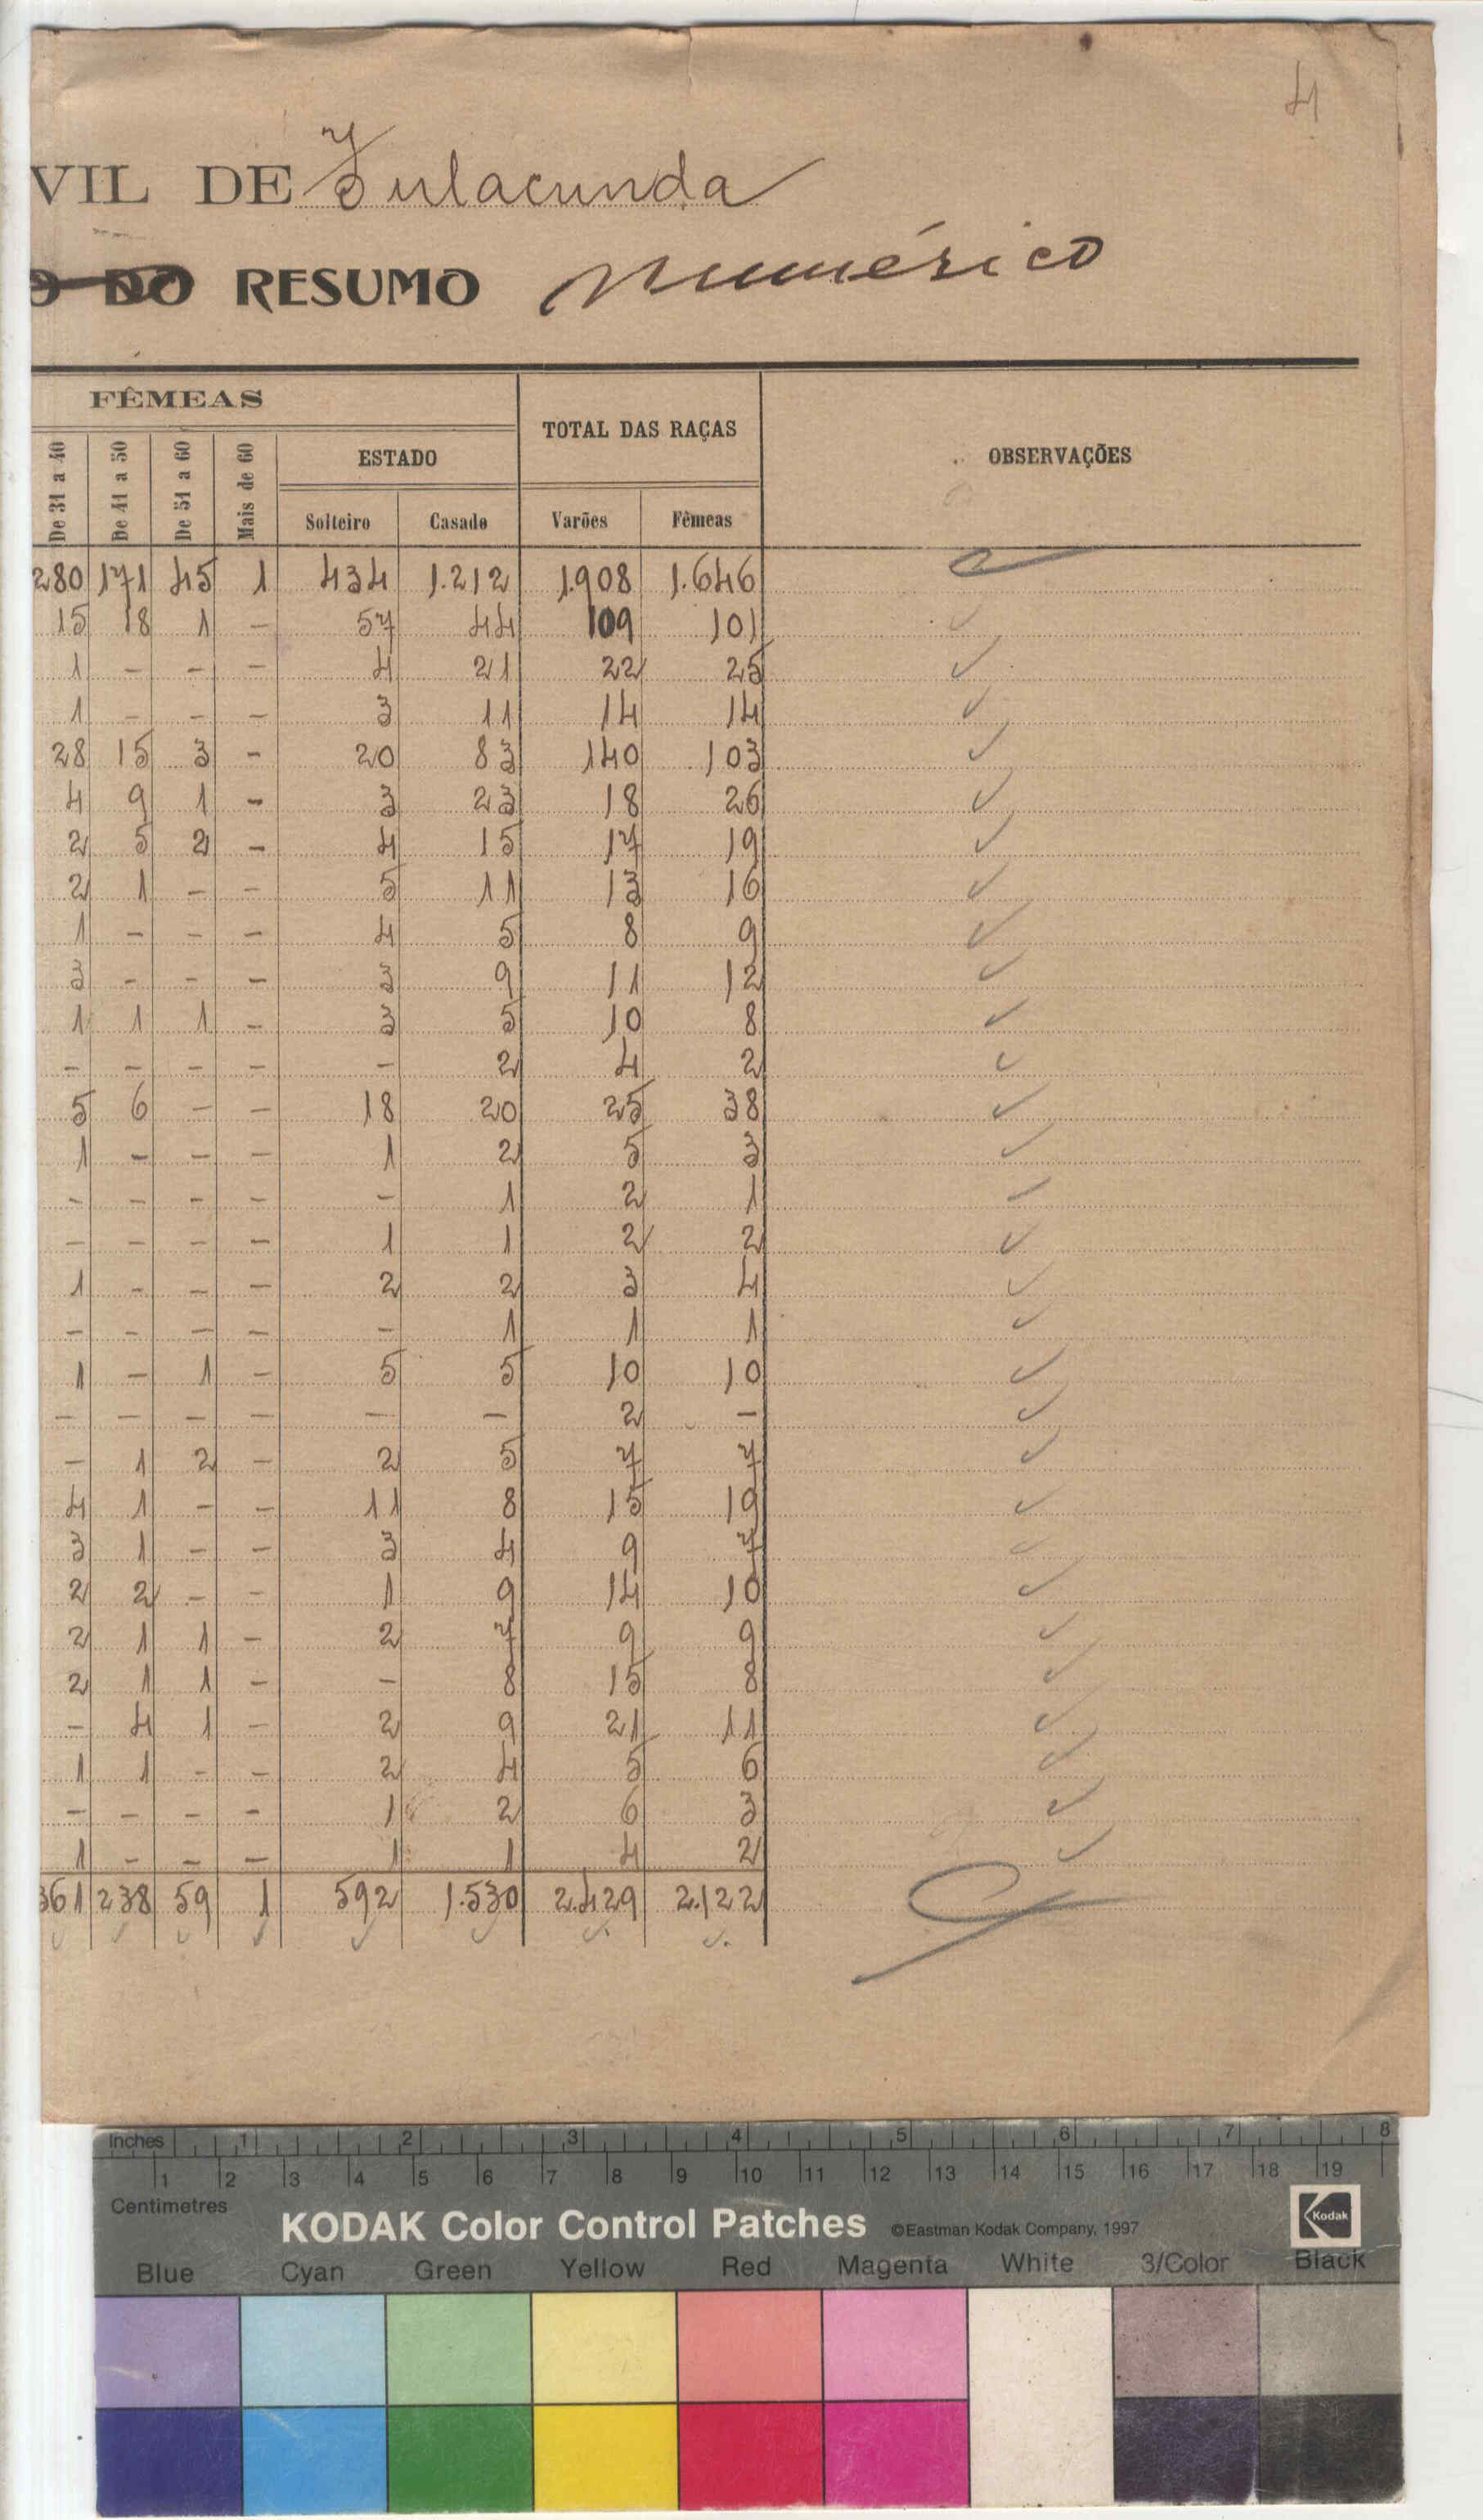 4
VIL DE Fulacunda
O DO RESUMO numérico
FÊMEAS
TOTAL DAS RAÇAS
OBSERVAÇÕES
De 31 a 40 De 41 a 50 De 51 a 60 Mais de 60
ESTADO
Solteiro Casado Varões Fêmeas
280 171 45 1 434 1.212 1.908 1.646
15 18 1 - 57 44 109 101
1 - - - 4 21 22 25
1 - - - 3 11 14 14
28 15 3 - 20 83 140 103
4 9 1 - 3 23 18 26
2 5 2 - 4 15 17 19
2 1 - - 5 11 13 16
1 - - - 4 5 8 9
3 - - - 3 9 11 12
1 1 1 - 3 5 10 8
- - - - - 2 4 2
5 6 - - 18 20 25 38
1 - - - 1 2 5 3
- - - - - 1 2 1
- - - - 1 1 2 2
1 - - - 2 2 3 4
- - - - - 1 1 1
1 - 1 - 5 5 10 10
- - - - - - 2 -
- 1 2 - 2 5 7 7
4 1 - - 11 8 15 19
3 1 - - 3 4 9 7
2 2 - - 1 9 14 10
2 1 1 - 2 7 9 9
2 1 1 - - 8 15 8
- 4 1 - 2 9 21 11
1 1 - - 2 4 5 6
- - - - 1 2 6 3
1 - - - 1 1 4 2
361 238 59 1 592 1.530 2.429 2.122
Inches 1 2 3 4 5 6 7 8
1 2 3 4 5 6 7 8 9 10 11 12 13 14 15 16 17 18 19
Centimetres
KODAK Color Control Patches ©Eastman Kodak Company, 1997 Kodak
Blue Cyan Green Yellow Red Magenta White 3/Color Black